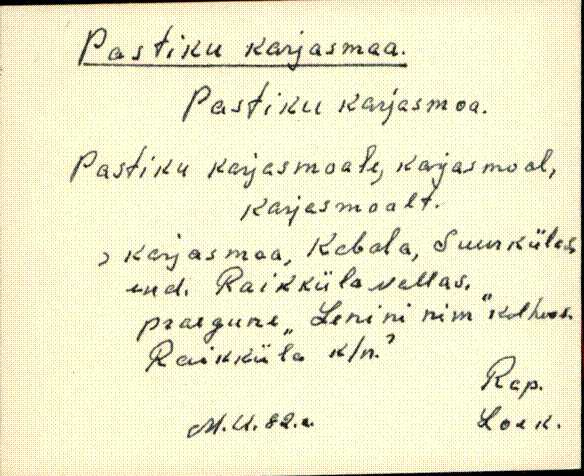 Pastiku karjasmaa.
Pastiku karjasmoa.
Pastiku karjasmoale, karjasmoal,
karjasmoalt.
, karjasmaa, Kabala, Suurkülas,
end. Raikküla vallas.
praegune „Lenini nim" kolhoos.
Raikküla k/n.'
Rap.
M.U. 82.a.